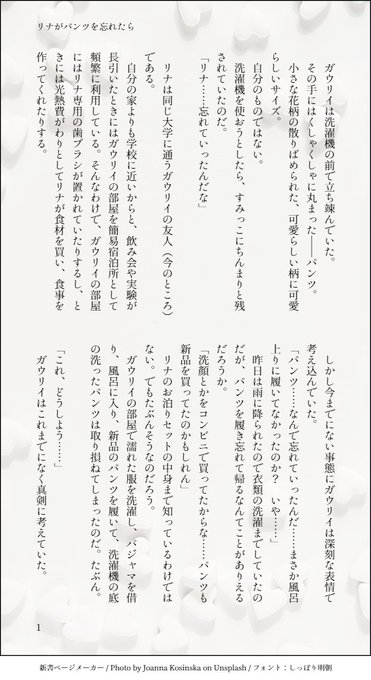 リナがパンツを忘れたら
ガウリイは洗濯機の前で立ち竦んでいた。
その手にはくしゃくしゃに丸まった――パンツ。
小さな花柄の散りばめられた、可愛らしい柄に可愛
らしいサイズ。
自分のものではない。
洗濯機を使おうとしたら、すみっこにちんまりと残
されていたのだ。
「リナ……忘れていったんだな」
リナは同じ大学に通うガウリイの友人（今のところ）
である。
自分の家よりも学校に近いからと、飲み会や実験が
長引いたときにはガウリイの部屋を簡易宿泊所として
頻繁に利用している。そんなわけで、ガウリイの部屋
にはリナ専用の歯ブラシが置かれていたりするし、と
きには光熱費がわりとしてリナが食材を買い、食事を
作ってくれたりする。
しかし今までにない事態にガウリイは深刻な表情で
考え込んでいた。
「パンツ……なんで忘れていったんだ……まさか風呂
上りに履いてなかったのか？　いや……」
昨日は雨に降られたので衣類の洗濯までしていたの
だが、パンツを履き忘れて帰るなんてことがありえる
だろうか。
「洗顔とかをコンビニで買ってたからな……パンツも
新品を買ってたのかもしれん」
リナのお泊りセットの中身まで知っているわけでは
ない。でもたぶんそうなのだろう。
ガウリイの部屋で濡れた服を洗濯し、パジャマを借
り、風呂に入り、新品のパンツを履いて、洗濯機の底
の洗ったパンツは取り損ねてしまったのだ。たぶん。
「これ、どうしよう……」
ガウリイはこれまでになく真剣に考えていた。
1
新書ページメーカー / Photo by Joanna Kosinska on Unsplash / フォント：しっぽり明朝